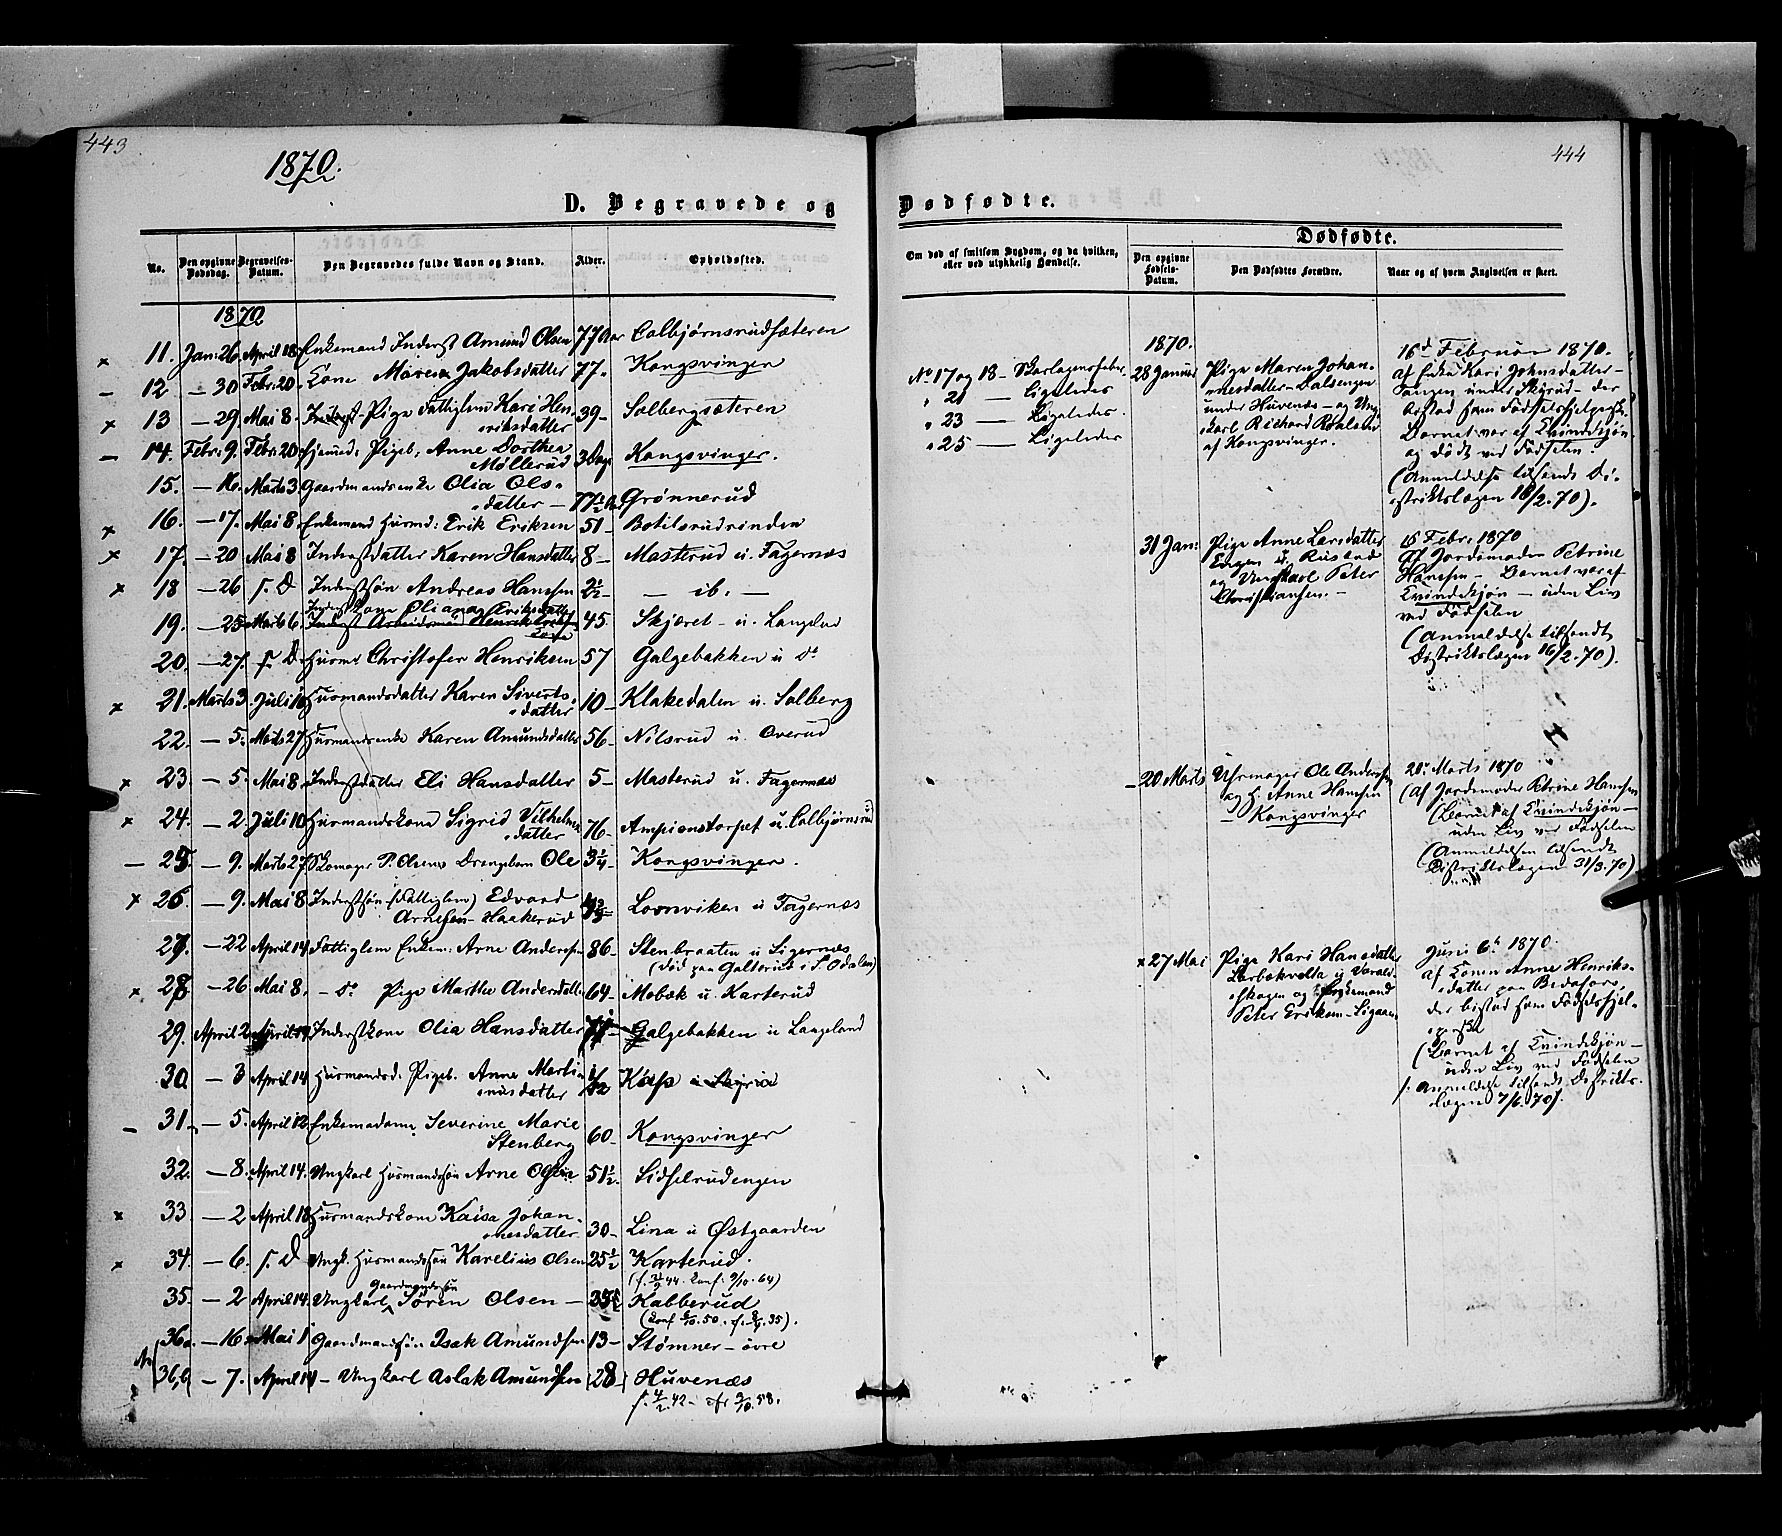 443
1870.
D. Begravede og
No.
Den opgivne Dødsdag.
Begravelses-Datum.
Den Begravedes fulde Navn og Stand.
Alder.
Opholdssted.
1870
11. Jan: 26. April 18. Enkemand Inderst Amund Olsen 77 Aar Colbjørnsrudsæteren
12 — 30 Febr: 20. Kone Jakobsdatter 77. Kongsvinger
13 — 29. Mai 8. Pige Fattiglem Kari Hen-
riksdatter 39 — Solbergsæteren
14. Febr: 9. Febr: 20 Pigeb. Anne Dorthea
Møllerud 3 Dage Kongsvinger.
15. — 16. Marts 3. Gaardmandsenke Olia Ols-
datter — 77½ Grønnerud
16. — 17. Mai 8. Enkemand Husmd: Erik Eriksen 51 — Botilsrudrinden
17. — 20 Mai 8 Inderstdatter Karen Hansdatter 8 — Masterud u. Fagernæs
18 — 26 s. D Inderstsøn Andreas Hansen 2½ — ib. —
19. — 25 Marts 6. Inderst Kone Oliana Eriksdatter 45 Skjæret u. Langelud
20. — 27. s. D. Husmd Christofer Henriksen 57 Galgebakken u do
21. Marts 3. Juli 10 Husmandsdatter Karen Siverts-
datter 10 — Klakedalen u. Solberg
22. — 5. Marts 27 Husmandsenke Karen Amundsdatter 56 — Nilsrud u. Overud
23. — 5. Mai 8. Inderstdatter Eli Hansdatter 5 — Masterud u. Fagernæs
24. — 2. Juli 10 Husmandskone Sigrid Vilhelms-
datter 76 — Ampianstorpet u. Colbjørnsrud
25 — 9. Marts 27 Skomager P. Olsens Drengebarn Ole 3/4 — Kongsvinger.
26 — 9. Mai 8 Inderstsøn (Fattiglem) Edvard
Arnesen Haakerud Lovnviken u Fagernæs
27. — 22 April 14 Fattiglem Enkem: Arne Andersen 86 — Stenbraaten u Sigernæs
(død paa Galterud i S. Odalen)
28 — 26 Mai 8. — do Pige Marthe Andersdatter 64 — Mobæk u. Karterud
29. April 2 April 14 Inderstkone Olia Hansdatter Galgebakken u Langeland
30 — 3 April 14 Husmandsd. Pigeb. Anne Marti-
nusdatter 1/12
31. — 5. April 12 Enkemadame Severine Marie
Stenberg 60 — Kongsvinger
32. — 8. April 14. Ungkarl Husmandssøn Arne Olsen 51½ Sidselrudengen
33. — 2 April 18 Husmandskone Kaisa Johan-
nesdatter 30 — Lina u Østgaarden
34. — 6. s. D Ungk. Husmandssøn Karelius Olsen 25½ Karterud.
(f. 44. Konf: 9/10. 64)
35. — 2 April 14. Ungkarl Gaardmandssøn Søren Olsen — Kabberud
(konf 50. f. 35).
36a. — 16. Mai 1 Gaardmandssøn Isak Amundsen 13 — Stømner — øvre
36,b — 7. April 14 — Ungkarl Aslak Amundsen 28 Huvenæs
f. 4/2. 42 — 58.
444
Dødfødte.
Om død af smitsom Sygdom, og da hvilken,
eller ved ulykkelig Hændelse.
Dødfødte.
Den opgivne Fødsels-Datum.
Den Dødfødtes Forældre.
Naar og af hvem Angivelsen er skeet.
No 17 og 18 — Skarlagensfeber
" 21 — Ligeledes
" 23 — Ligeledes.
" 25 — Ligeledes
1870.
28 Januar
Pige Maren Johan-
nesdatter Dalsengen
under Huvenæs — og Ung-
karl Richard Roaldsen
af Kongsvinger.
16d Februar 1870.
af Enke Kari Johnsdatter
Tangen under Skyrud — der
bistod som Fødselshjelperske.
Barnet var af Kvindekjøn
og dødt ved Fødselen.
(Anmeldelse tilsendt Di-
striktslægen 16/2. 70).
31 Jan:
Pige Anne Larsdatter
Engen u. Rustad
og Ungkarl Peter
Christiansen. —
15 Febr: 1870
af Jordemoder Petrine
Hansen — Barnet var af
Kvindekjøn — uden Liv
ved Fødselen
(Anmeldelse tilsendt
Distriktslægen 16/2. 70).
20 Marts
Uhrmager Ole Andersen
og H. Anne Hansen
Kongsvinger
20. Marts 1870
(af Jordemoder Petrine Hansen
(Barnet af Kvindekjøn —
uden Liv ved Fødselen
(Anmeldelsen tilsendt
Distriktslægen 31/3. 70)
x 27 Mai
Pige Kari Hansdatter
Lerbækvelta u Varald-
skogen og Enkemand
Peter Eriksen
Juni 6te 1870.
af Konen Anne Henriks-
datter paa Bedafors,
der bistod som Fødselshjel-
perske
(Barnet af Kvindekjøn —
uden Liv ved Fødselen
Anmeldelse tilsendt Distrikts-
lægen 7/6. 70).